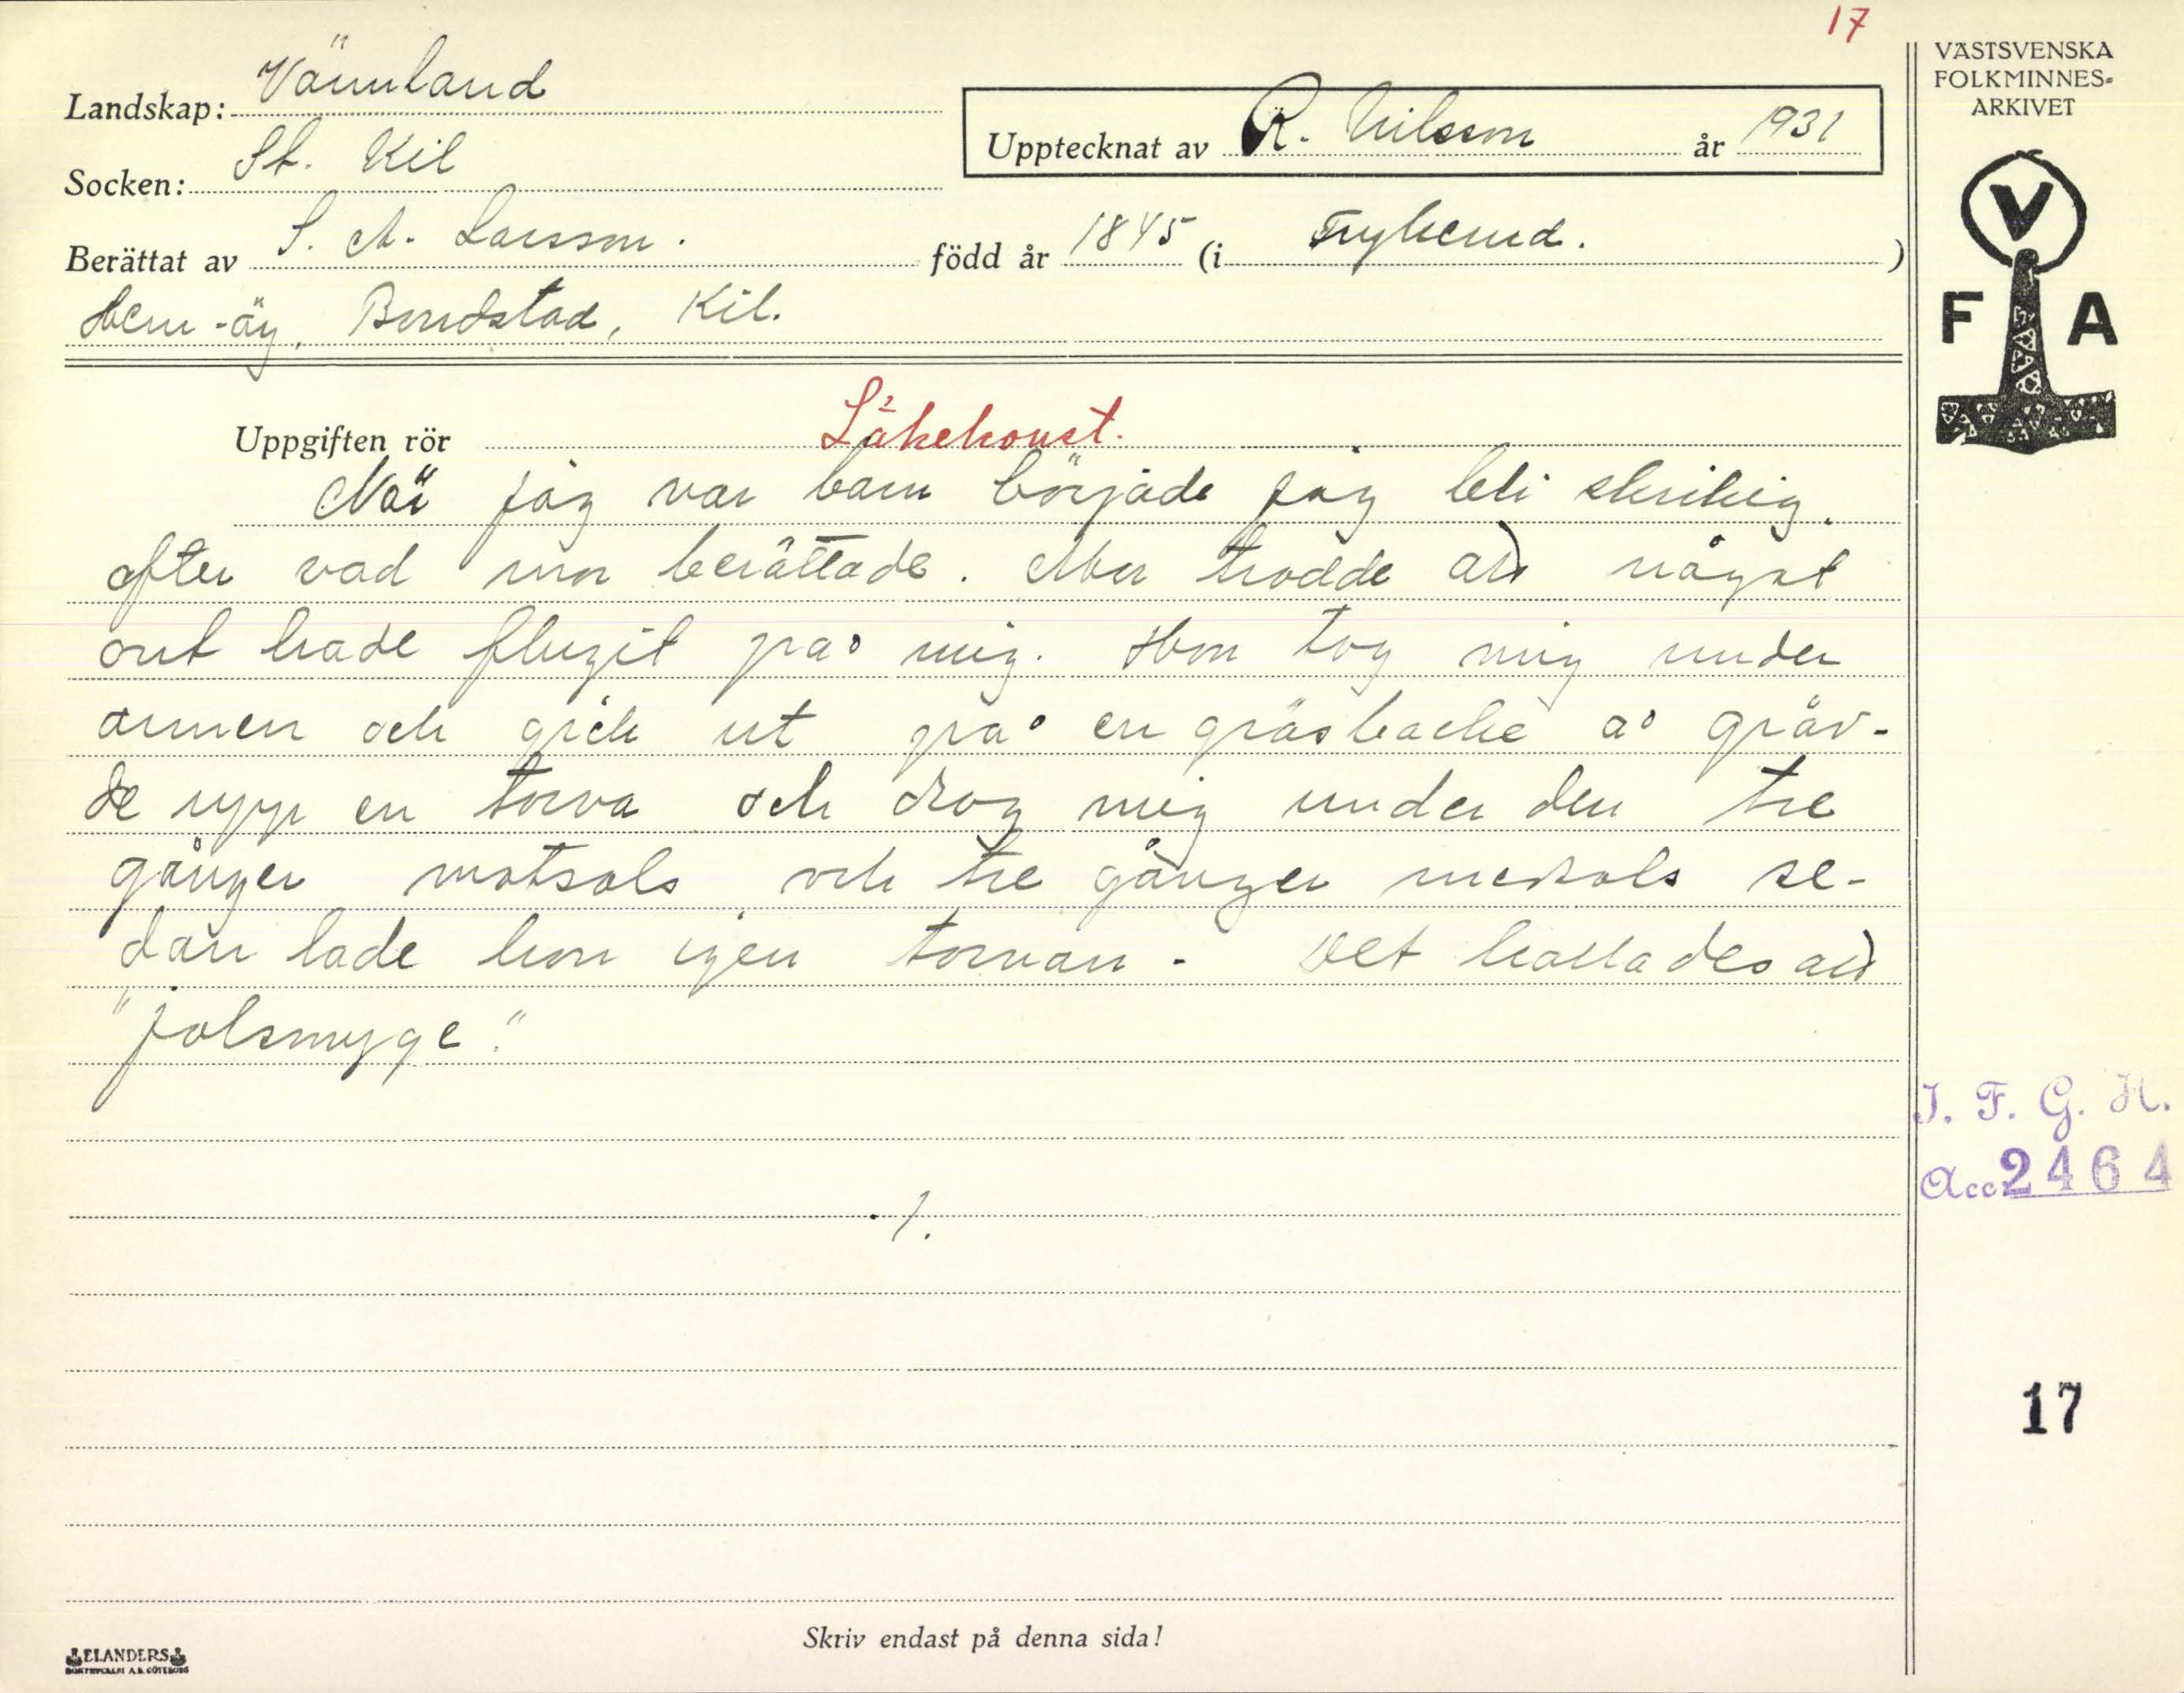 17
VÄSTSVENSKA
FOLKMINNES-
ARKIVET
V
F A
Landskap: Värmland
Upptecknat av R. Nilsson år 1931
Socken: St. Kil
Berättat av S. M. Larsson. född år 1845 (i Frykerud.)
Hem-äg, Bondstad, Kil.
Uppgiften rör Läkekonst.
När jag var barn började jag bli skrikig.
efter vad mor berättade. Mor trodde att något
ont hade flugit på mig. Hon tog mig under
armen och gick ut på en gräsbacke å gräv-
de upp en torva och drog mig under den tre
gånger motsols och tre gånger medsols se-
dan lade hon igen torvan. Det kallades att
"jolsmyge."
I. F. G. H.
Acc. 2464
1.
17
Skriv endast på denna sida!
ELANDERS
BOKTRYCKERI A.B. GÖTEBORG